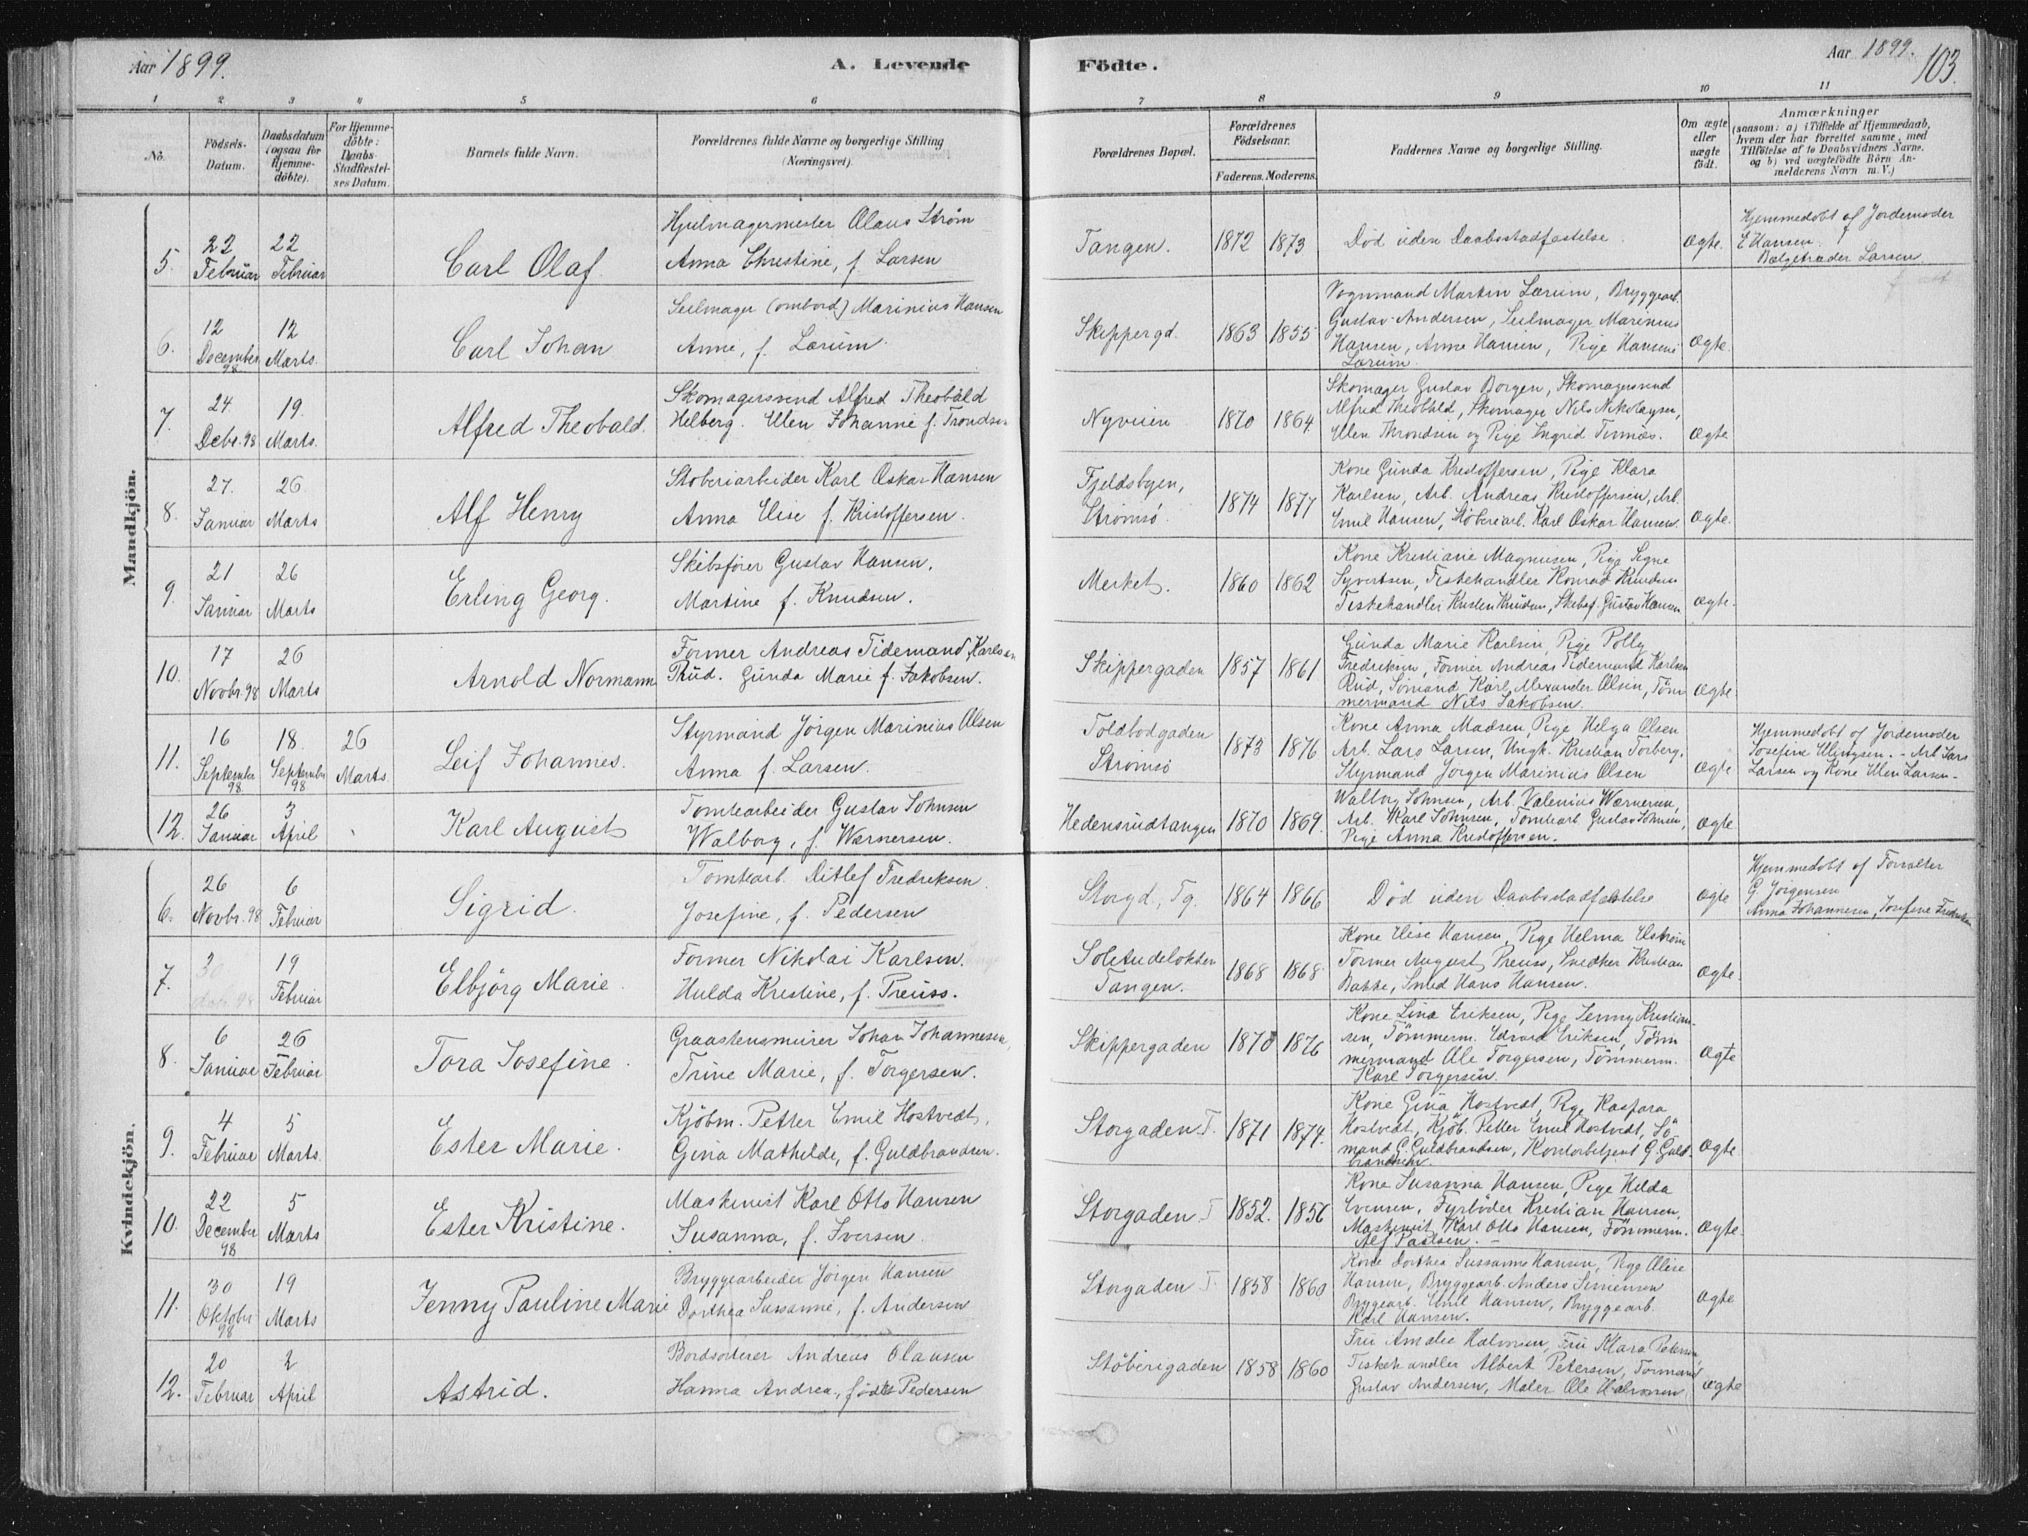 Aar 1899.
A. Levende Födte.
Aar 1899.
103.
1 2 3 4 5 6 7 8 9 10 11
No.
Födsels-
Datum.
Daabsdatum
(ogsaa for
Hjemme-
döbte).
For Hjemme-
döbte:
Daabs-
Stadfæstel-
ses Datum.
Barnets fulde Navn.
Forældrenes fulde Navne og borgerlige Stilling
(Næringsvei).
Forældrenes Bopæl.
Forældrenes
Födselsaar.
Faderens. Moderens.
Faddernes Navne og borgerlige Stilling.
Om ægte
eller
uægte
født.
Anmærkninger
(saasom: a) i Tilfælde af Hjemmedaab,
hvem der har forrettet samme, med
Tilföielse af to Daabsvidners Navne.
og b) ved uægtefödte Börn An-
melderens Navn m. V.)
Mandkjön.
5. 22 Februar 22 Februar
Carl Olaf
Hjulmagermester Olaus Strøm
Anna Christine, f. Larsen
Tangen. 1872 1873
Død uden Daabsstadfæstelse.
Ægte.
Hjemmedøbt af Jordemoder
E Hansen.
Bælgetræder Larsen.
6. 12 December 98 12 Marts.
Carl Johan
Seilmager (ombord) Marinius Hansen
Anne, f. Lærum.
Skippergd. 1863 1855
Vognmand Martin Lærum, Bryggearb.
Gustav Andersen, Seilmager Marinius
Hansen, Anne Hansen, Pige Hansine
Lærum
Ægte.
7. 24 Debr. 98 19. Marts.
Alfred Theobald.
Skomagersvend Alfred Theobald
Helberg. Elen Johanne f. Trondsen
Nyveien 1870 1864
Skomager Gustav Borgen, Skomagersvend
Alfred Theobald, Skomager Nils Nikolaysen,
Elen Throndsen og Pige Ingrid
Ægte
8. 27. Januar 26 Marts
Alf Henry
Støberiarbeider Karl Oskar Hansen
Anna Elise f. Kristoffersen.
Fjeldsbyen,
Strømsø. 1874 1877
Kone Gunda Kristoffersen, Pige Klara
Karlsen, Arb. Andreas Kristoffersen, Arb.
Emil Hansen, Støberiarb. Karl Oskar Hansen
Ægte.
9. 21 Januar 26 Marts
Erling Georg.
Skibsfører Gustav Hansen.
Martine f. Knudsen.
Merket. 1860 1862
Kone Kristiane Magnusen, Pige Signe
Syvertsen, Fiskehandler Konrad Knudsen
Fiskehandler Kristen Knudsen, Skibsf. Gustav Hansen
Ægte.
10. 17 Novbr. 98 26 Marts
Arnold Normann
Former Andreas Tidemand Karlsen
Rud. Gunda Marie f. Jakobsen.
Skippergaden 1857 1861
Gunda Marie Karlsen, Pige Polly
Fredriksen, Former Andreas Tidemand Karlsen
Rud, Sømand Karl Alexander Olsen, Tøm
mermand Nils Jakobsen.
Ægte
11. 16 September 98 18. September 98 26 Marts.
Leif Johannes.
Styrmand Jørgen Marinius Olsen
Anna f. Larsen.
Toldbodgaden
Strømsø 1873 1876
Kone Anna Madsen, Pige Helga Olsen
Arb. Lars Larsen, Ungk. Kristian Torberg,
Styrmand Jørgen Marinius Olsen
Ægte
Hjemmedøbt af Jordemoder
Josefine - Arb. Lars
Larsen og Kone Elen Larsen.
12. 26 Januar 3 April
Karl August
Tomtearbeider Gustav Johnsen
Walborg, f. Wærnersen.
Hedensrudtangen 1870 1869.
Walborg Johnsen, Arb. Valenius Wærnersen,
Arb. Karl Johnsen, Tomtearb. Gustav Johnsen,
Pige Anna Kristoffersen.
Ægte
Kvindekjön.
6. 26 Novbr. 98 6 Februar
Sigrid.
Tomtearb. Ditlef Fredriksen.
Josefine, f. Pedersen
Storgd., Tg. 1864 1866
Død uden Daabsstadfæstelse
Ægte
Hjemmedøbt af Forvalter
G. Jørgensen
Anna Johannesen, Josefine Fredriksen
7. 30 decr. 98 19 Februar
Elbjörg Marie.
Former Nikolai Karlsen.
Hulda Kristine, f. Preuss.
Solitudeløkken
Tangen. 1868 1868
Kone Elise Hansen, Pige Helma Elstrøm
Former August Preuss, Snedker Kristian
Bakke, Smed Hans Hansen.
Ægte.
8. 6 Januar 26 Februar
Tora Josefine.
Graastensmurer Johan Johannesen,
Trine Marie, f. Torgersen.
Skippergaden 1870 1876
Kone Lina Eriksen, Pige Jenny Kristian-
sen, Tömmerm. Edvard Eriksen, Tömm
mermand Ole Torgersen, Tömmerm.
Karl Torgersen.
Ægte
9. 4 Februar 5 Marts.
Ester Marie.
Kjöbm. Petter Emil Hostvedt,
Gina Mathilde, f. Guldbrandsen.
Storgaden T. 1871 1874.
Kone Gina Hostvedt, Pige Kaspara
Hostvedt, Kjöb. Petter Emil Hostvedt, Sö
mand G. Guldbrandsen, Kontorbetjent G. Guld-
brandsen.
Ægte
10. 22 December 98 5 Marts
Ester Kristine.
Maskinist Karl Otto Hansen
Susanna, f. Iversen.
Storgaden T 1852. 1856
Kone Susanna Hansen, Pige Hilda
Evensen, Fyrböder Kristian Hansen,
Maskinist Karl Otto Hansen, Tömmerm.
Alf Paulsen.
Ægte.
11. 30 Oktober 98 19 Marts
Jenny Pauline Marie
Bryggearbeider Jørgen Hansen
Dorthea Susanne, f. Andersen
Storgaden T. 1858 1860
Kone Dorthea Sussanne Hansen, Pige Olise
Hansen, Bryggearb. Anders Simensen
Bryggearb. Emil Hansen, Bryggearb.
Karl Hansen.
Ægte
12. 20 Februar 2 April
Astrid.
Bordsorterer Andreas Olausen
Hanna Andrea, födt Pedersen
Støberigaden 1858 1860
Fru Amalie Halvorsen, Fru Mara Petersen,
Fiskehandler Albert Petersen, Formand
Gustav Andersen, Maler Ole Halvorsen,
Ægte